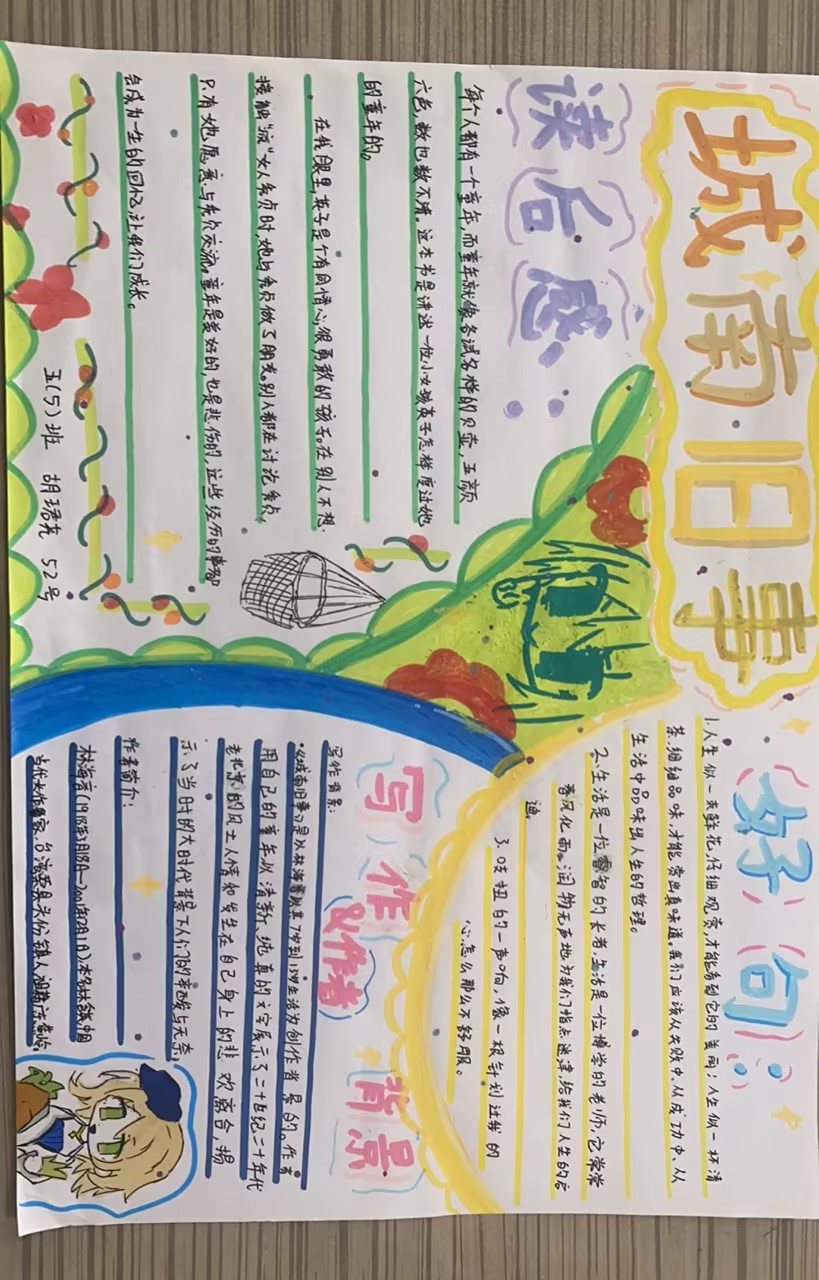 城南旧事
读后感：
每个人都有一个童年，而童年就像各式各样的贝壳，五颜
六色，数也数不清。这本书是讲述一位小女孩英子怎样度过她
的童年的。
在我眼里，英子是个有同情心，很勇敢的孩子。在别人不想
接触“疯”女人秀贞时，她与秀贞做了朋友。别人都在讨论秀贞，
只有她愿意与秀贞交流。童年是美好的，也是悲伤的，这些经历的事都
会成为一生的回忆，让我们成长。
五(5)班 胡珺 52号
好句：
1.人生似一束鲜花，仔细观赏，才能看到它的美丽；人生似一杯清
茶，细细品味，才能赏出真味道。我们应该从失败中、从成功中、从
生活中品味出人生的哲理。
2.生活是一位睿智的长者，生活是一位博学的老师，它常常
春风化雨，润物无声地为我们指点迷津，给我们人生的启
迪。
3.吱扭的一声响，像一根针划过我的
心，怎么那么不舒服。
写作背景
&作者
写作背景：
《城南旧事》是以林海音从其7岁到13岁生活为创作背景的。作者
用自己的童年以清新、地真的文字展示了二十世纪二十年代
老北京的风土人情和发生在自己身上的悲欢离合，揭
示了当时的大时代背景下人们的辛酸与无奈。
作者简介：
林海音(1918年3月18日—2001年12月1日)，本名林含英，
当代女作家，台湾苗栗县头份镇人，